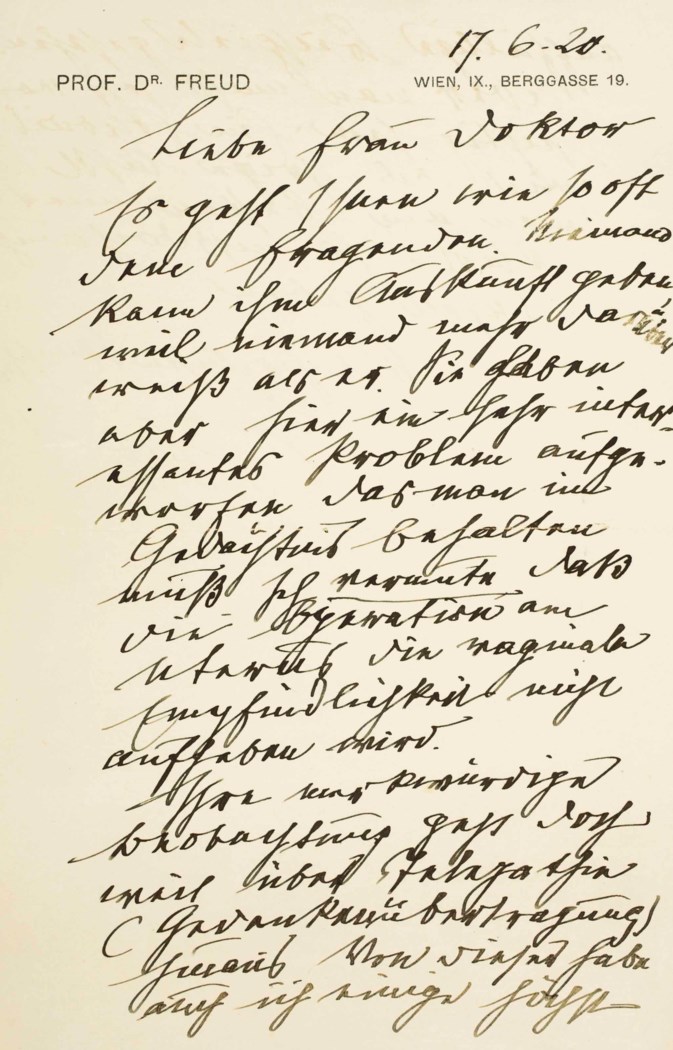 17. 6. 20.
PROF. DR. FREUD
WIEN, IX., BERGGASSE 19.
Liebe Frau Doktor
Es geht Ihnen wie so oft
dem Fragenden. Niemand
kann ihm Auskunft geben
weil niemand mehr darüber
weiß als er. Sie haben
aber hier ein sehr inter-
essantes Problem aufge-
worfen das man im
Gedächtnis behalten
muß Ich vermute daß
die Operation am
Uterus die vaginale
Empfindlichkeit nicht
aufheben wird.
Ihre merkwürdige
Beobachtung geht doch
weit über Telepathie
(Gedankenübertragung)
hinaus Von dieser habe
auch ich einige höchst